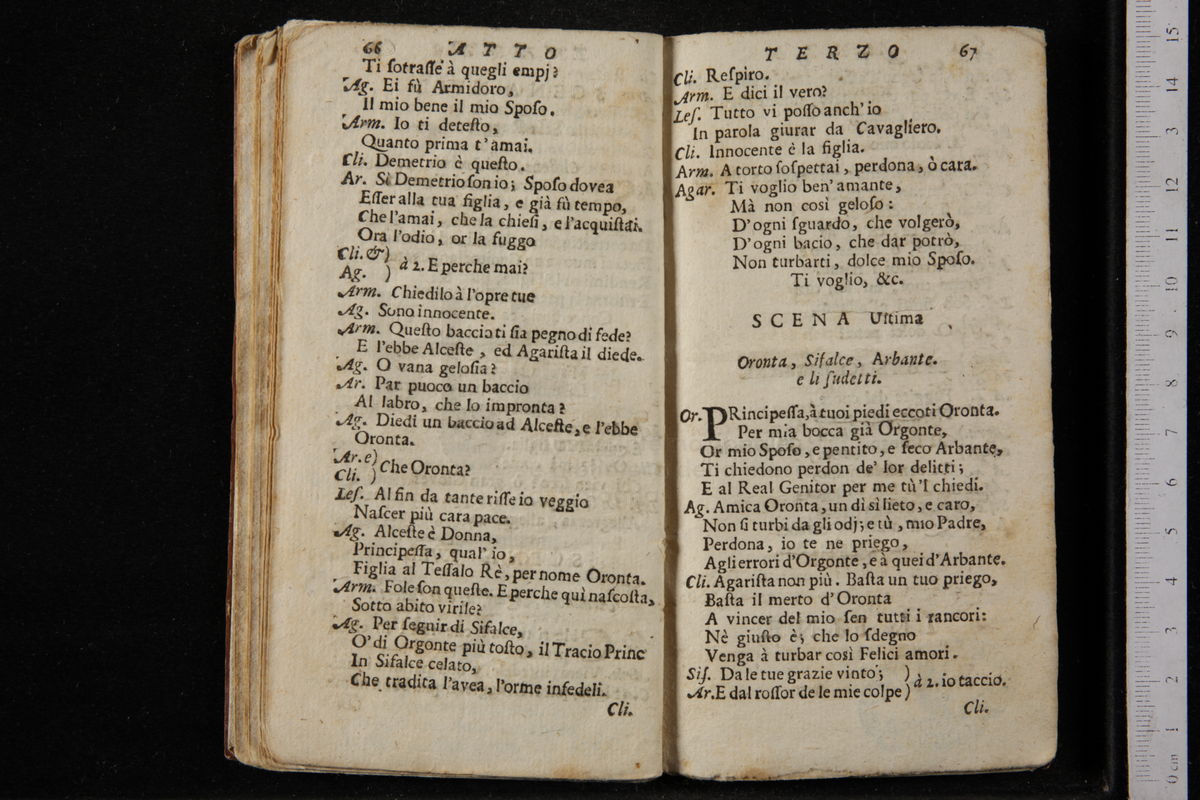 66 ATTO
Ti ſotraſſe à quegli empj?
Ag. Ei fù Armidoro,
Il mio bene il mio Spoſo.
Arm. Io ti deteſto,
Quanto prima t'amai.
Cli. Demetrio è queſto.
Ar. Sì Demetrio ſon io; Spoſo dovea
Eſſer alla tua figlia, e già fù tempo,
Che l'amai, che la chieſi, e l'acquiſtai.
Ora l'odio, or la fuggo
Cli. &)
Ag. ) à 2. E perche mai?
Arm. Chiedilo à l'opre tue
Ag. Sono innocente.
Arm. Queſto baccio ti ſia pegno di fede?
E l'ebbe Alceſte, ed Agariſta il diede.
Ag. O vana geloſia?
Ar. Par puoco un baccio
Al labro, che lo impronta?
Ag. Diedi un baccio ad Alceſte, e l'ebbe
Oronta.
Ar. e)
Cli. ) Che Oronta?
Leſ. Al fin da tante riſſe io veggio
Naſcer più cara pace.
Ag. Alceſte è Donna,
Principeſſa, qual' io,
Figlia al Teſſalo Rè, per nome Oronta.
Arm. Fole ſon queſte. E perche quì naſcoſta,
Sotto abito virile?
Ag. Per ſeguir di Sifalce,
O' di Orgonte più toſto, il Tracio Princ
In Sifalce celato,
Che tradita l'avea, l'orme infedeli.
Cli.
TERZO 67
Cli. Reſpiro.
Arm. E dici il vero?
Leſ. Tutto vi poſſo anch' io
In parola giurar da Cavagliero.
Cli. Innocente è la figlia.
Arm. A torto ſoſpettai, perdona, ò cara.
Agar. Ti voglio ben' amante,
Mà non così geloſo:
D'ogni ſguardo, che volgerò,
D'ogni bacio, che dar potrò,
Non turbarti, dolce mio Spoſo.
Ti voglio, &c.
SCENA Ultima
Oronta, Sifalce, Arbante.
e li ſudetti.
Or. PRincipeſſa, à tuoi piedi eccoti Oronta.
Per mia bocca già Orgonte,
Or mio Spoſo, e pentito, e ſeco Arbante,
Ti chiedono perdon de' lor delitti;
E al Real Genitor per me tù'l chiedi.
Ag. Amica Oronta, un dì sì lieto, e caro,
Non ſi turbi da gli odj; e tù, mio Padre,
Perdona, io te ne priego,
Agli errori d'Orgonte, e à quei d'Arbante.
Cli. Agariſta non più. Baſta un tuo priego,
Baſta il merto d'Oronta
A vincer del mio ſen tutti i rancori:
Nè giuſto è, che lo ſdegno
Venga à turbar così Felici amori.
Siſ. Da le tue grazie vinto; )
Ar. E dal roſſor de le mie colpe) à 2. io taccio.
Cli.